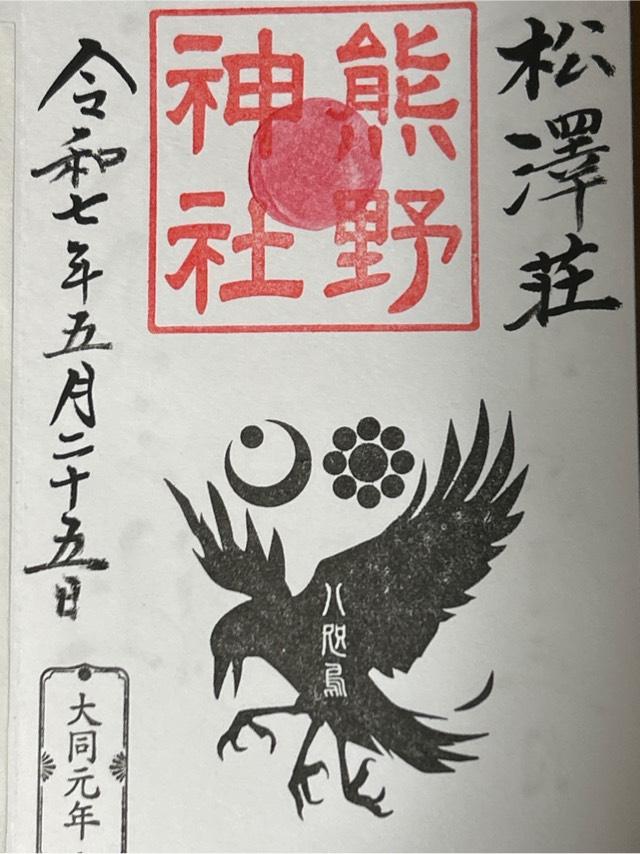 松澤荘
熊野
神社
八咫烏
令和七年五月二十五日
大同元年